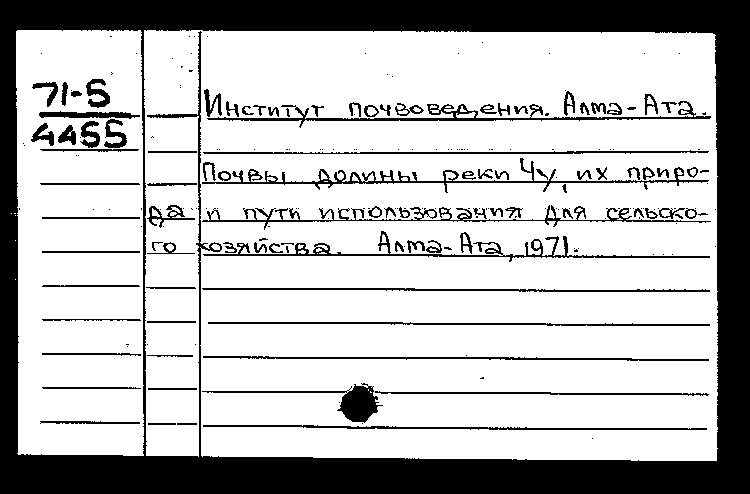 71-5
4455
Институт почвоведения. Алма-Ата.
Почвы долины реки Чу, их приро-
да и пути использования для сельско-
го хозяйства. Алма-Ата, 1971.